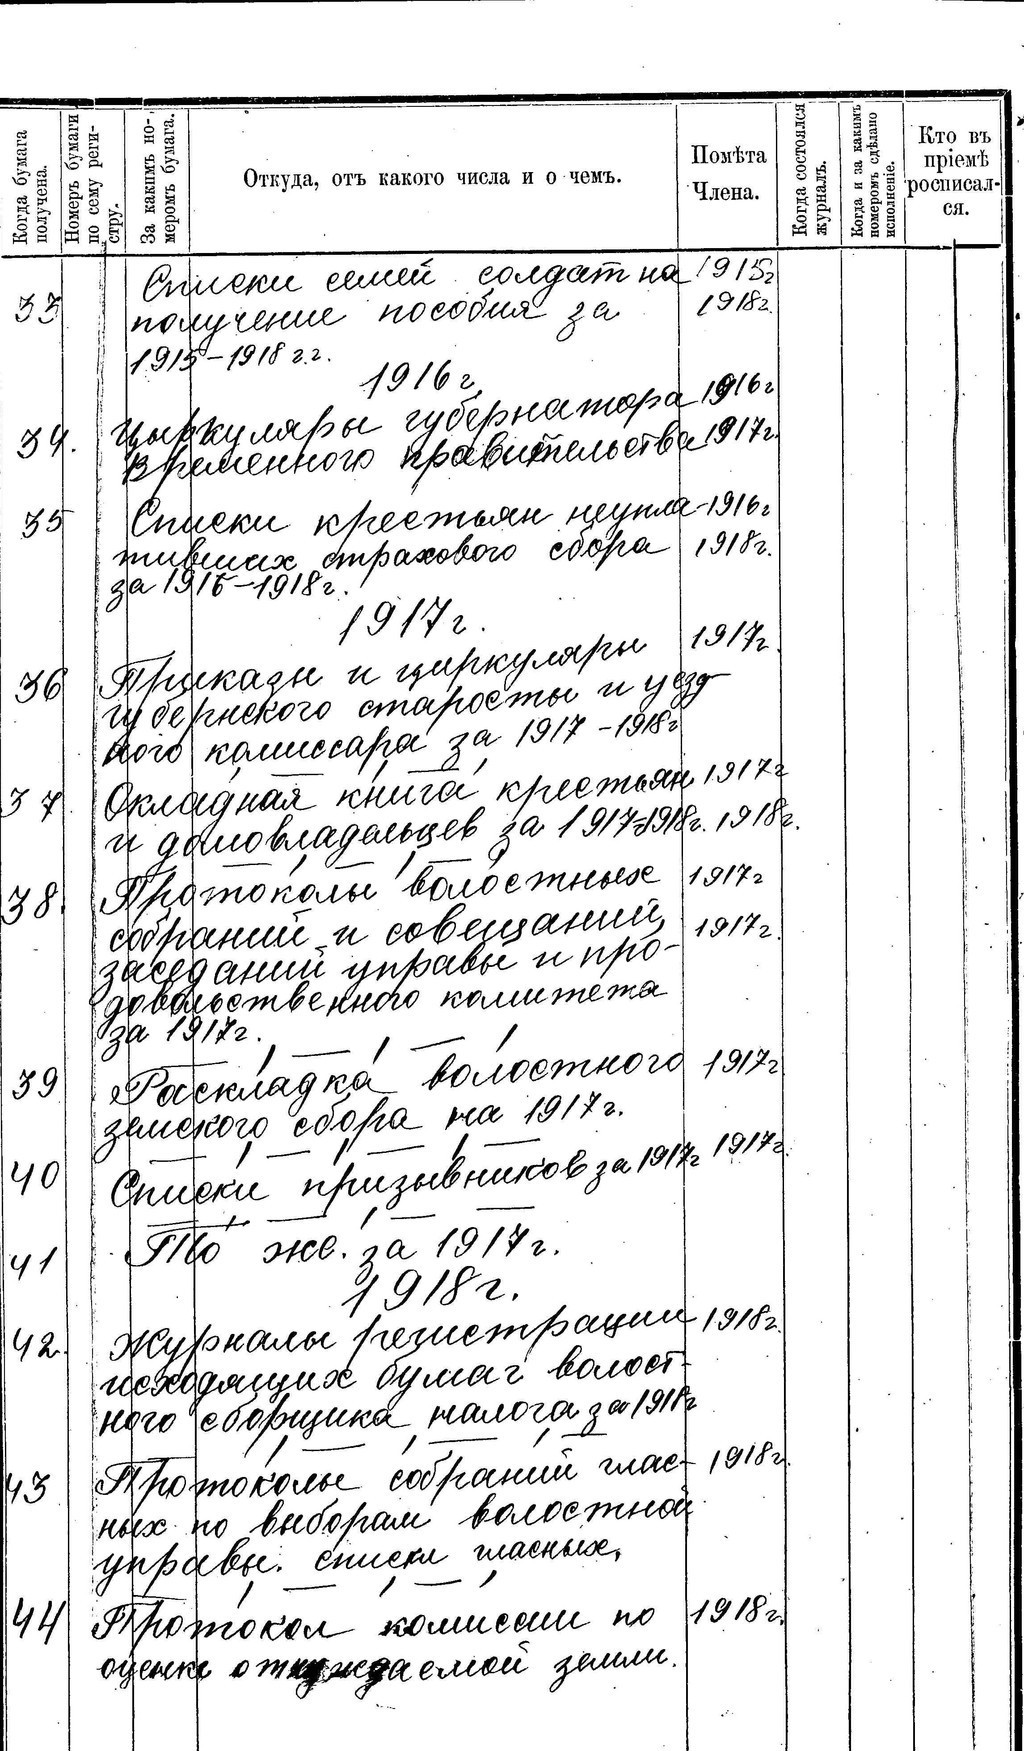 Когда бумага получена.
Номеръ бумаги по сему реги-стру.
За какимъ но-меромъ бумага.
Откуда, отъ какого числа и о чемъ.
Помѣта Члена.
Когда состоялся журналъ.
Когда и за какимъ номеромъ сдѣлано исполненіе.
Кто въ пріемѣ росписал-ся.
33 Списки семей солдат на 1915г
получение пособия за 1918г.
1915-1918 г.г.
1916 г.
34. Циркуляры губернатора 1916г
временного правительства 1917г.
35 Списки крестьян неупла- 1916г
тивших страхового сбора 1918г.
за 1915-1918г.
1917 г.
36 Приказы и циркуляры 1917г.
губернского старосты и уезд-
ного комиссара за 1917-1918г
37. Окладная книга крестьян 1917г
и домовладельцев за 1917-1918г. 1918г.
38. Протоколы волостных 1917г
собраний и совещаний, 1917г.
заседаний управы и про-
довольственного комитета
за 1917г.
39 Раскладка волостного 1917г
земского сбора на 1917г.
40 Списки призывников за 1917г 1917г.
41 То же. за 1917г.
1918г.
42. Журналы регистрации 1918г.
исходящих бумаг волост-
ного сборщика налога за 1918г
43 Протоколы собраний глас- 1918г.
ных по выборам волостной
управы. списки гласных.
44 Протокол комиссии по 1918г.
оценке отчуждаемой земли.